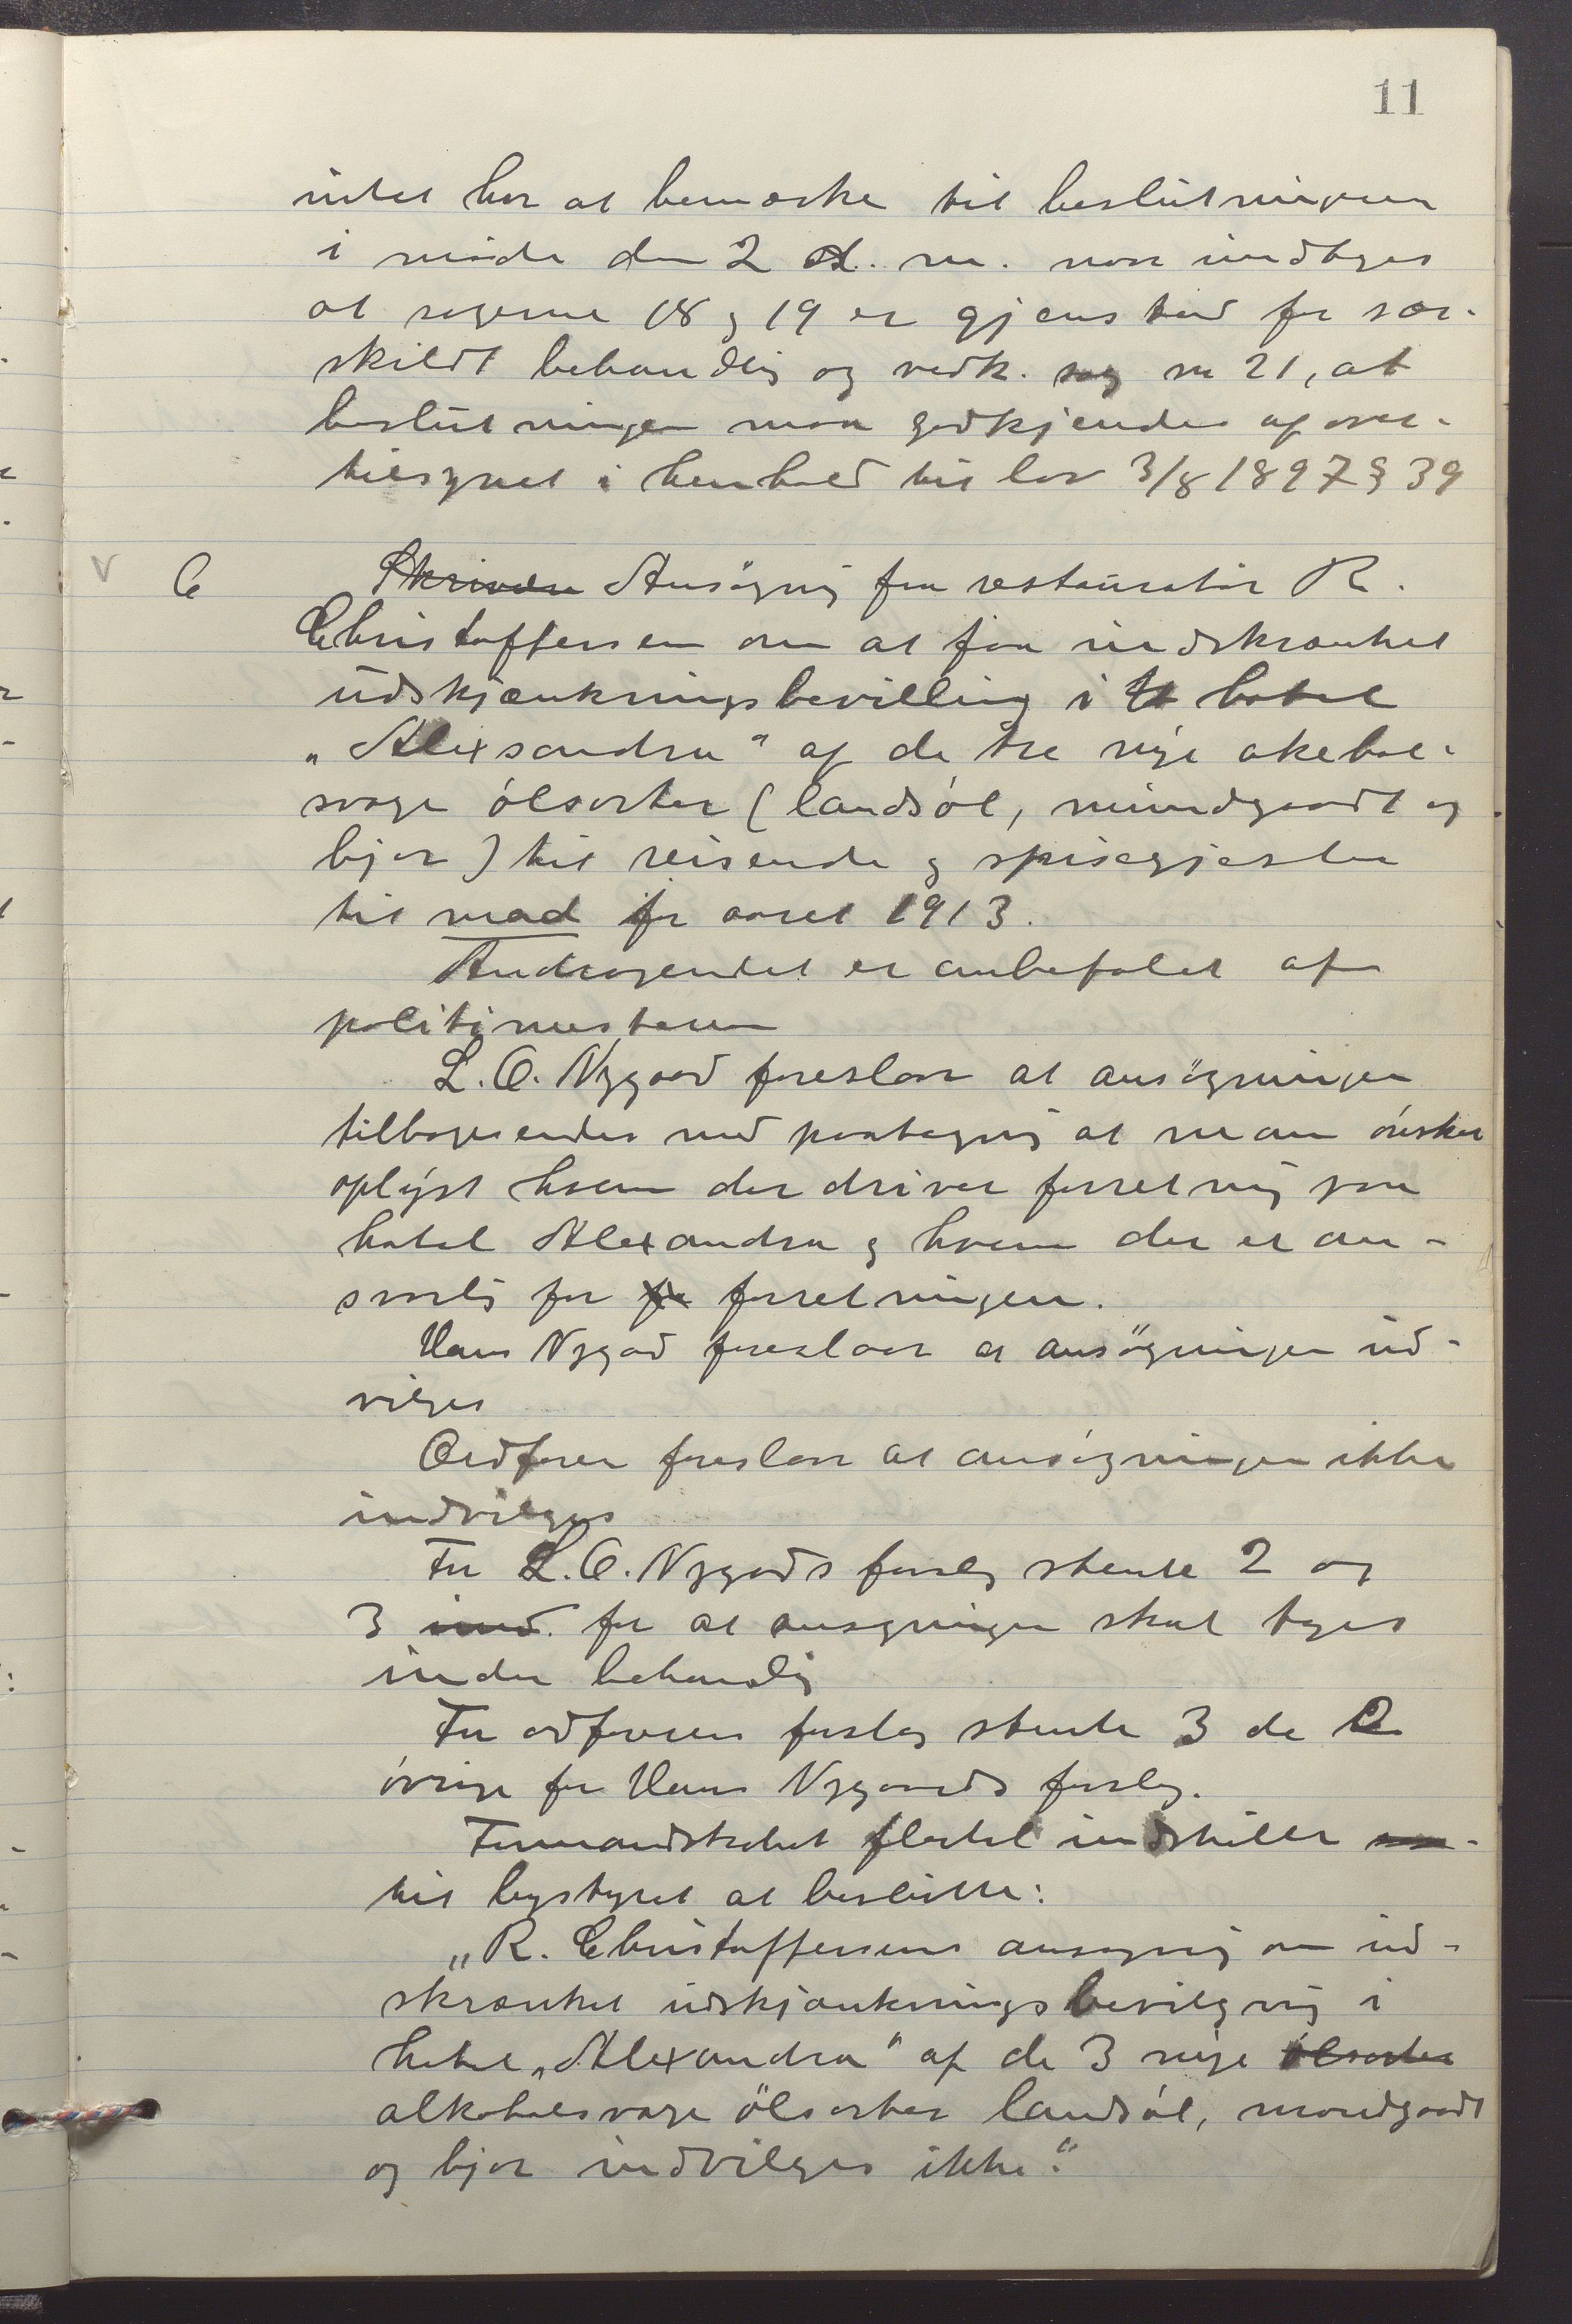 11
intet har at bemærke til beslutningene
i møde den 2 d. m. naar undtages
at sagerne 18 og 19 er gjenstand for sær-
skildt behandling og vedk. sag nr 21, at
beslutningen maa godkjendes af over-
tilsynet i henhold til lov 3/8 1897 § 39
V 6 Skrivelse Ansögning fra restauratör R.
Christoffersen om at faa indskrænket
udskjænkningsbevilling i hotel
„Alexsandra" af de tre nye akehol-
svage ölsorter (landsöl, mundgodt og
bjor) til reisende og spisegjester
til mad for aaret 1913.
Andragendet er anbefalet af
politimesteren
L. O. Nygaard foreslaar at ansögningen
tilbagesendes med paategning at man önsker
oplyst hvem der driver forretning paa
hotel Alexandra og hvem der er an-
svarlig for forretningen.
Hans Nygad foreslaar at ansögningen ind-
vilges
Ordförer foreslaar at ansögningen ikke
indvilges
For L. O. Nygards forslag stemte 2 og
3 imod. for at ansøgningen skal tages
under behandling
For ordførerens forslag stemte 3 de 2
övrige for Hans Nygaards forslag.
Formandskabet flertal indstiller
til bystyret at beslutte:
„R. Christoffersens ansøgning om ind-
skrænket udskjænkningsbevilgning i
hotel „Alexandra" af de 3 nye ölsorter
alkoholsvage ölsorter landsöl, mundgodt
og bjor indvilges ikke."